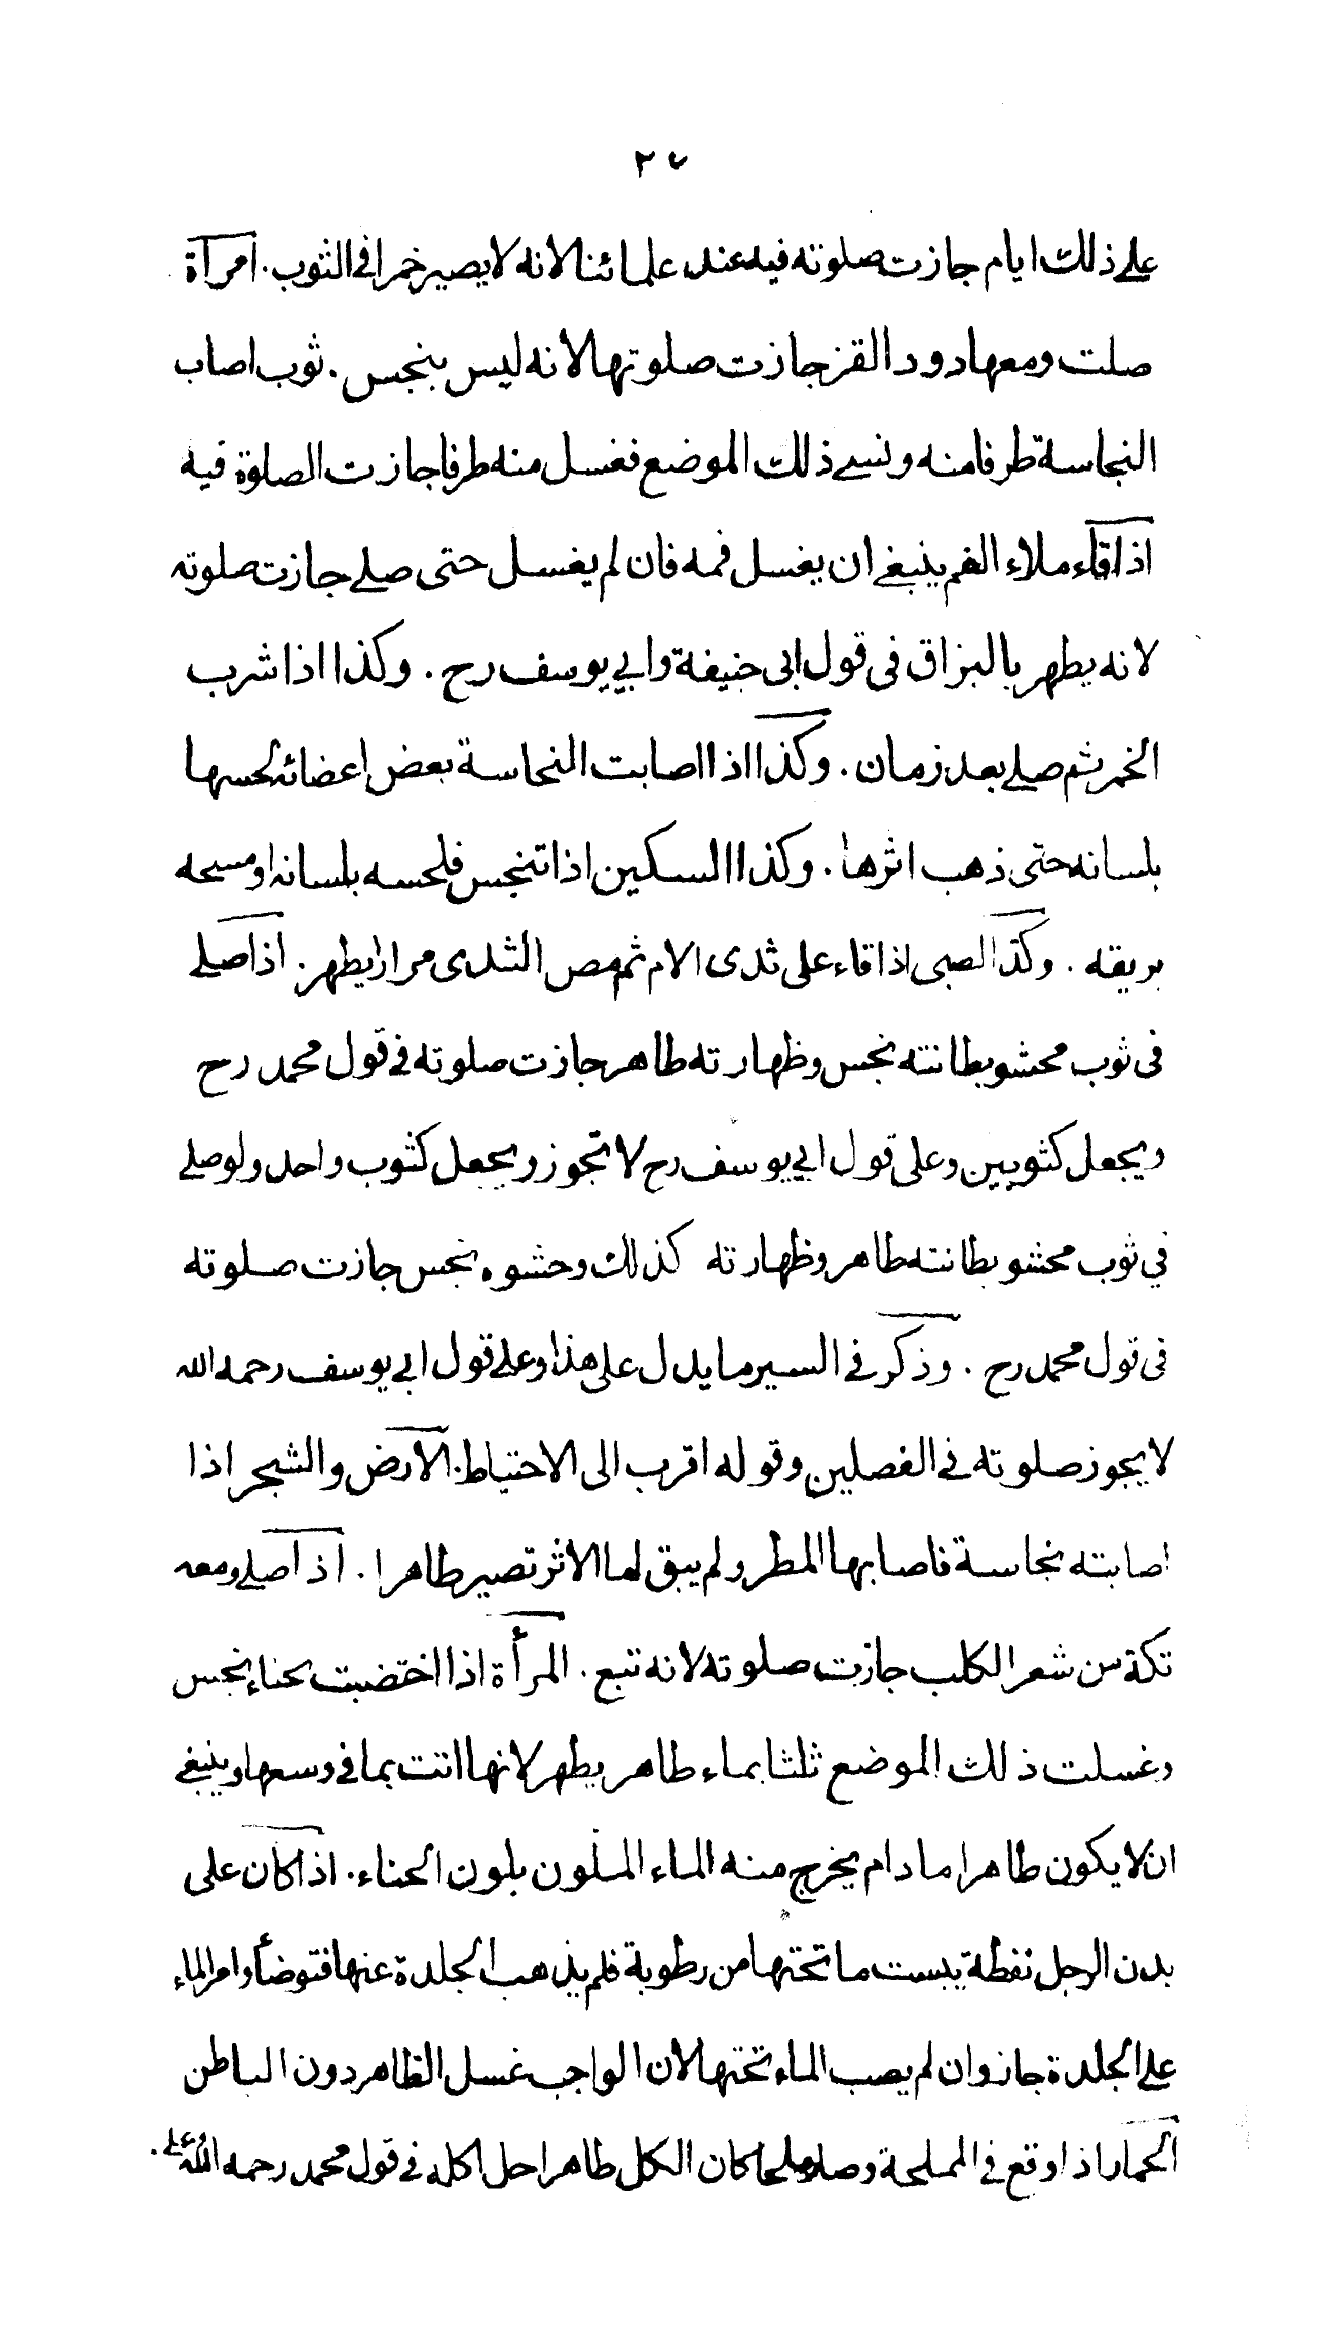 ٢٧
على ذلك ايام جازت صلوته فيه عند علمائنا لانه لا يصير خمرا في الثوب . امرأة
صلت ومعها دود القز جازت صلوتها لانه ليس بنجس . ثوب اصاب
النجاسة طرفا منه ونسى ذلك الموضع فغسل منه طرفا جازت الصلوة فيه
اذا قاء ملاء الفم ينبغى ان يغسل فمه فان لم يغسل حتى صلى جازت صلوته
لانه يطهر بالبزاق فى قول ابى حنيفة وابي يوسف رح . وكذا اذا شرب
الخمر ثم صلى بعد زمان . وكذا اذا اصابت النجاسة بعض اعضائه لحسها
بلسانه حتى ذهب اثرها . وكذا السكين اذا تنجس فلحسه بلسانه او مسحه
بريقه . وكذا الصبى اذا قاء على ثدى الام ثم مص الثدى مرارا يطهر . اذا صلى
فى ثوب محشو بطانته نجس وظهارته طاهر جازت صلوته فى قول محمد رح
ويجعل كثوبين وعلى قول ابي يوسف رح لا تجوز ويجعل كثوب واحد ولو صلى
في ثوب محشو بطانته طاهر وظهارته كذلك وحشوه نجس جازت صلوته
فى قول محمد رح . وذكر في السير ما يدل على هذا وعلى قول ابي يوسف رحمه الله
لا يجوز صلوته في الفصلين وقوله اقرب الى الاحتياط . الارض والشجر اذا
اصابته نجاسة فاصابها المطر ولم يبق لها الاثر تصير طاهرا . اذا صلى ومعه
تكة من شعر الكلب جازت صلوته لانه تبع . المرأة اذا اختضبت بحناء نجس
وغسلت ذلك الموضع ثلثا بماء طاهر يطهر لانها اتت بما في وسعها وينبغى
ان لا يكون طاهرا ما دام يخرج منه الماء الملون بلون الحناء . اذا كان على
بدن الرجل نفطة يبست ما تحتها من رطوبة فلم يذهب الجلدة عنها فتوضأ وامر الماء
على الجلدة جاز وان لم يصب الماء تحتها لان الواجب غسل الظاهر دون الباطن
الحمار اذا وقع في المملحة وصار ملحا كان الكل طاهرا حل اكله في قول محمد رحمه الله